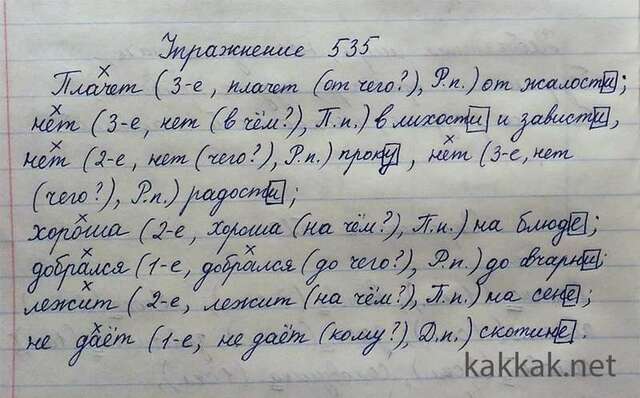 Упражнение 535
Плачет (3-е, плачет (от чего?), Р.п.) от жалости;
нет (3-е, нет (в чём?), П.п.) в лихости и зависти,
нет (2-е, нет (чего?), Р.п.) проку, нет (3-е, нет
(чего?), Р.п.) радости;
хороша (2-е, хороша (на чём?), П.п.) на блюде;
добрался (1-е, добрался (до чего?), Р.п.) до овчарни;
лежит (2-е, лежит (на чём?), П.п.) на сене;
не даёт (1-е, не даёт (кому?), Д.п.) скотине.
kakkak.net